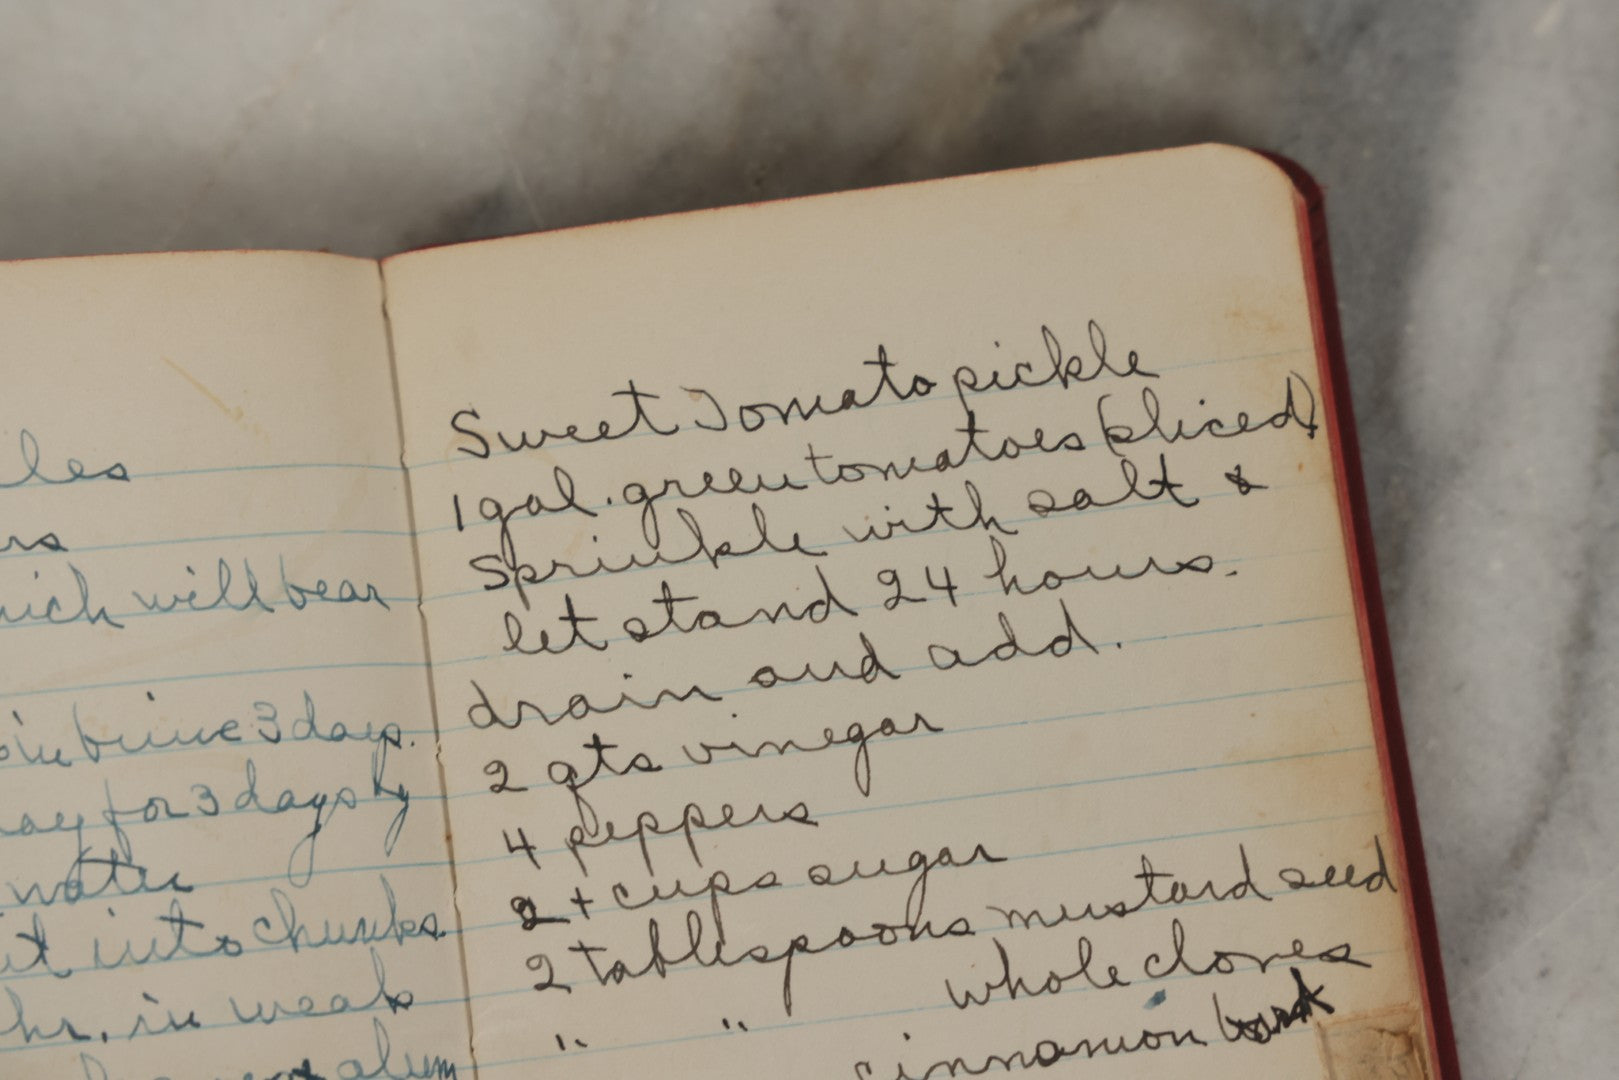 les
rs
will bear
brine 3 days.
for 3 days by
water
into chunks.
hr. in weak
alum
Sweet Tomato pickle
1 gal. green tomatoes (sliced)
Sprinkle with salt &
let stand 24 hours.
drain and add.
2 qts vinegar
4 peppers
2 + cups sugar
2 tablespoons mustard seed
" " whole cloves
cinnamon bark